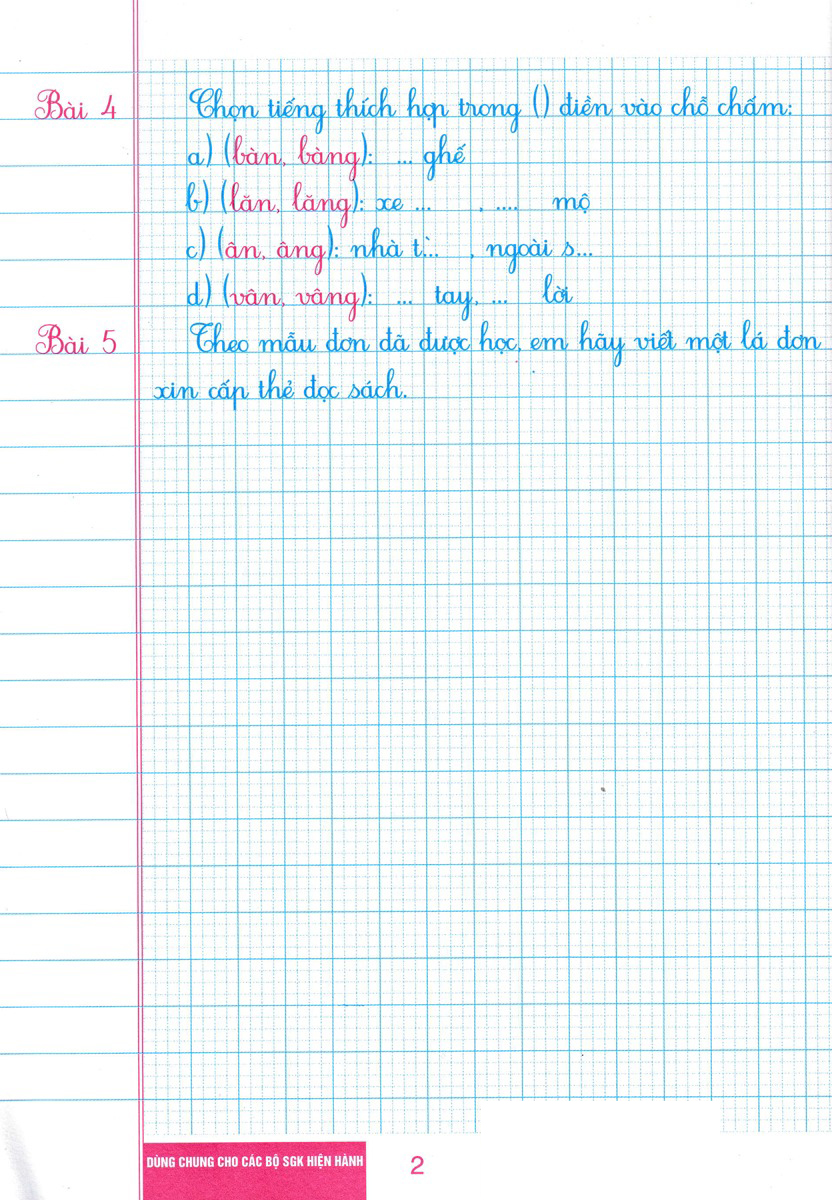 Bài 4 Chọn tiếng thích hợp trong () điền vào chỗ chấm:
a) (bàn, bàng): ... ghế
b) (lăn, lăng): xe ... , .... mộ
c) (ân, âng): nhà t`... , ngoài s...
d) (vân, vâng): ... tay, ... lời
Bài 5 Theo mẫu đơn đã được học, em hãy viết một lá đơn
xin cấp thẻ đọc sách.
DÙNG CHUNG CHO CÁC BỘ SGK HIỆN HÀNH 2